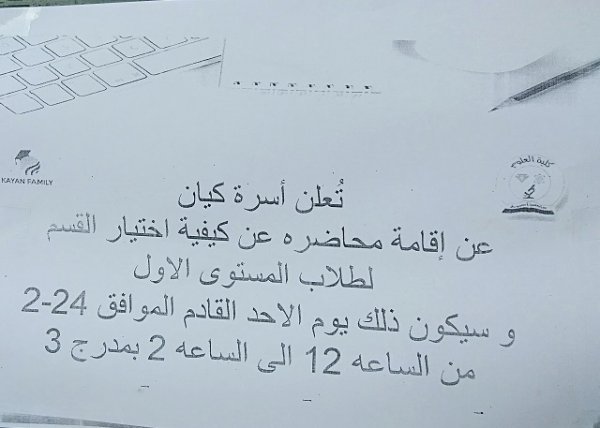 كلية العلوم
KAYAN FAMILY
تُعلن أسرة كيان
عن إقامة محاضره عن كيفية اختيار القسم
لطلاب المستوى الاول
و سيكون ذلك يوم الاحد القادم الموافق 24-2
من الساعه 12 الى الساعه 2 بمدرج 3